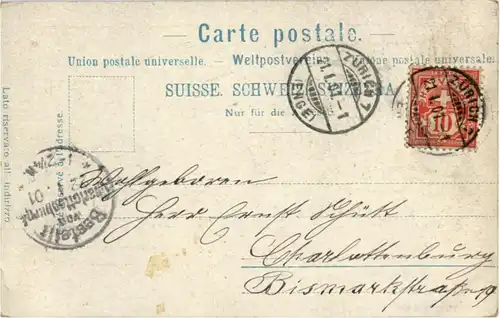 Carte postale.
Union postale universelle. Weltpostverein. Unione postale universale
SUISSE. SCHWEIZ. SVIZZERA
Nur für die
Lato riservato all'indirizzo
réservé à l'adresse.
ZÜRICH 7
(ENGE)
ZÜRICH
10
Bestellt
vom
01
Wohlgeboren
Herrn Ernst Schütt
Charlottenburg
Bismarckstraße